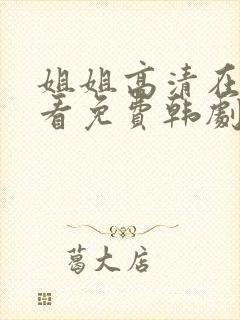 姐姐高清在
看免费韩剧
葛大店